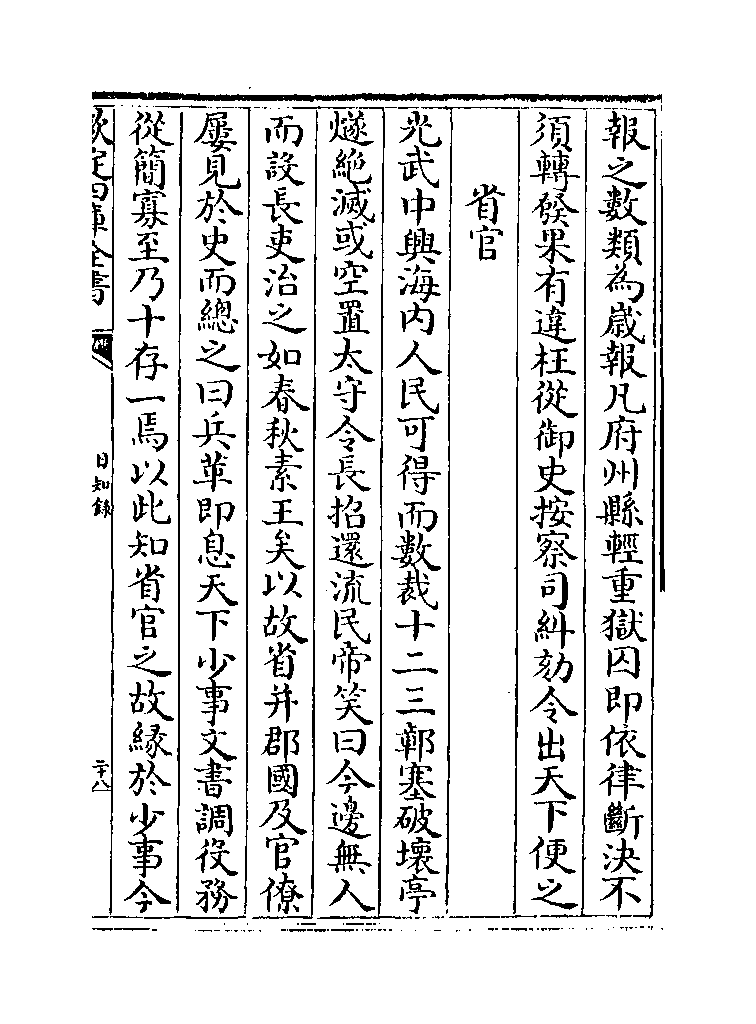 報之數類為嵗報凡府州縣輕重獄囚即依律斷決不
須轉發果有違枉從御史按察司糾劾令出天下便之
省官
光武中興海内人民可得而數裁十二三鄣塞破壞亭
燧絶滅或空置太守令長招還流民帝笑曰今邊無人
而設長吏治之如春秋素王矣以故省并郡國及官僚
屢見於史而總之曰兵革即息天下少事文書調役務
從簡寡至乃十存一焉以此知省官之故緣於少事今
欽定四庫全書
日知錄
二十八